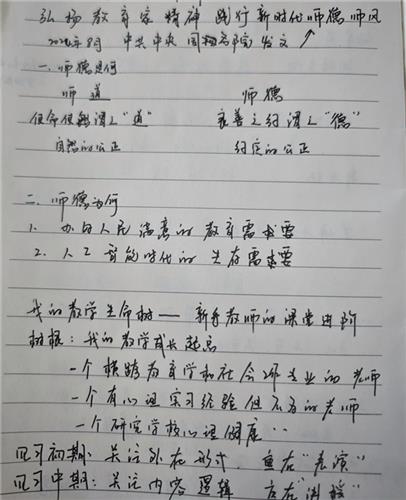 弘扬教育家精神 践行新时代师德师风
2024年8月 中共中央 国务院 发文
一、师德是何
师道 师德
使命但 谓之“道” 良善之 谓之“德”
自然的公正 约定的公正
二、师德为何
1. 办好人民满意的教育需求要
2. 人工智能时代的生存需求要
我的教学生命树——新手教师的课堂进阶
树根：我的教学成长起点
一个横跨教育学和社会学专业的老师
一个有心理实习经验但不多的老师
一个研究学校心理健康..
见习初期：关注外在形式，重在“表演”
见习中期：关注内容逻辑